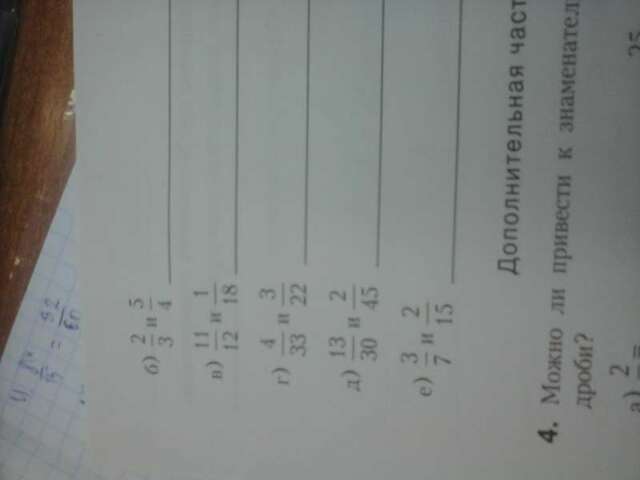 б) 2/3 и 5/4
в) 11/12 и 1/18
г) 4/33 и 3/22
д) 13/30 и 2/45
е) 3/7 и 2/15
Дополнительная част
4. Можно ли привести к знаменател
дроби?
25
а) 2